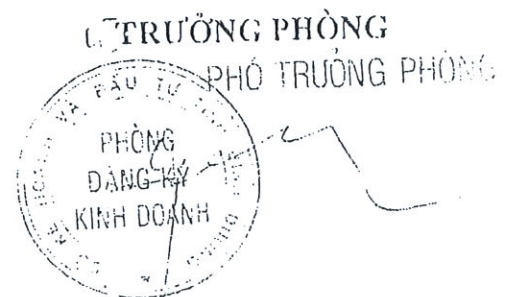 TRƯỞNG PHÒNG
PHÓ TRƯỞNG PHÒNG
VÀ ĐẦU TƯ
PHÒNG
ĐĂNG KÝ
KINH DOANH